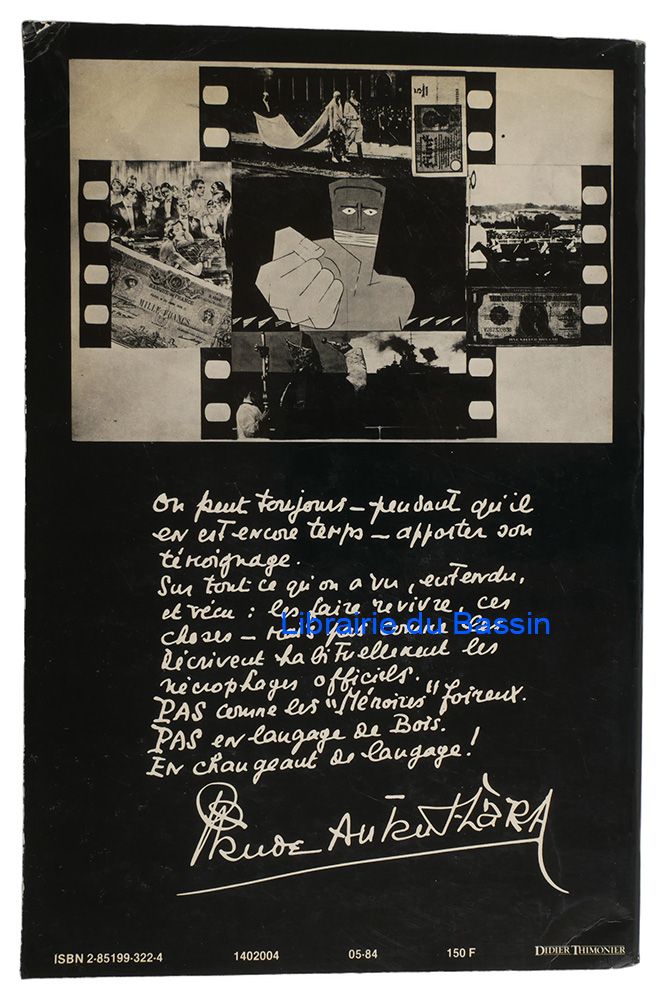 MILLE FRANCS
On peut toujours – pendant qu'il
en est encore temps – apporter son
témoignage.
Sur tout ce qu'on a vu, entendu,
et vécu : les faire revivre, ces
choses – mais pas comme les
Librairie du Bassin
décrivent habituellement les
nécrophages officiels.
PAS comme les "Mémoires" foireux.
PAS en langage de Bois.
En changeant de langage !
Claude Autant-Lara
ISBN 2-85199-322-4 1402004 05-84 150 F DIDIER THIMONIER